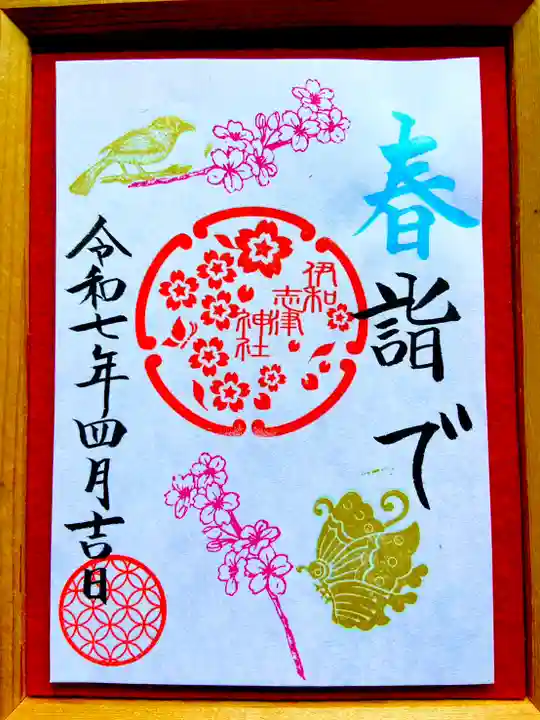 春詣で
伊和
志津
神社
令和七年四月吉日